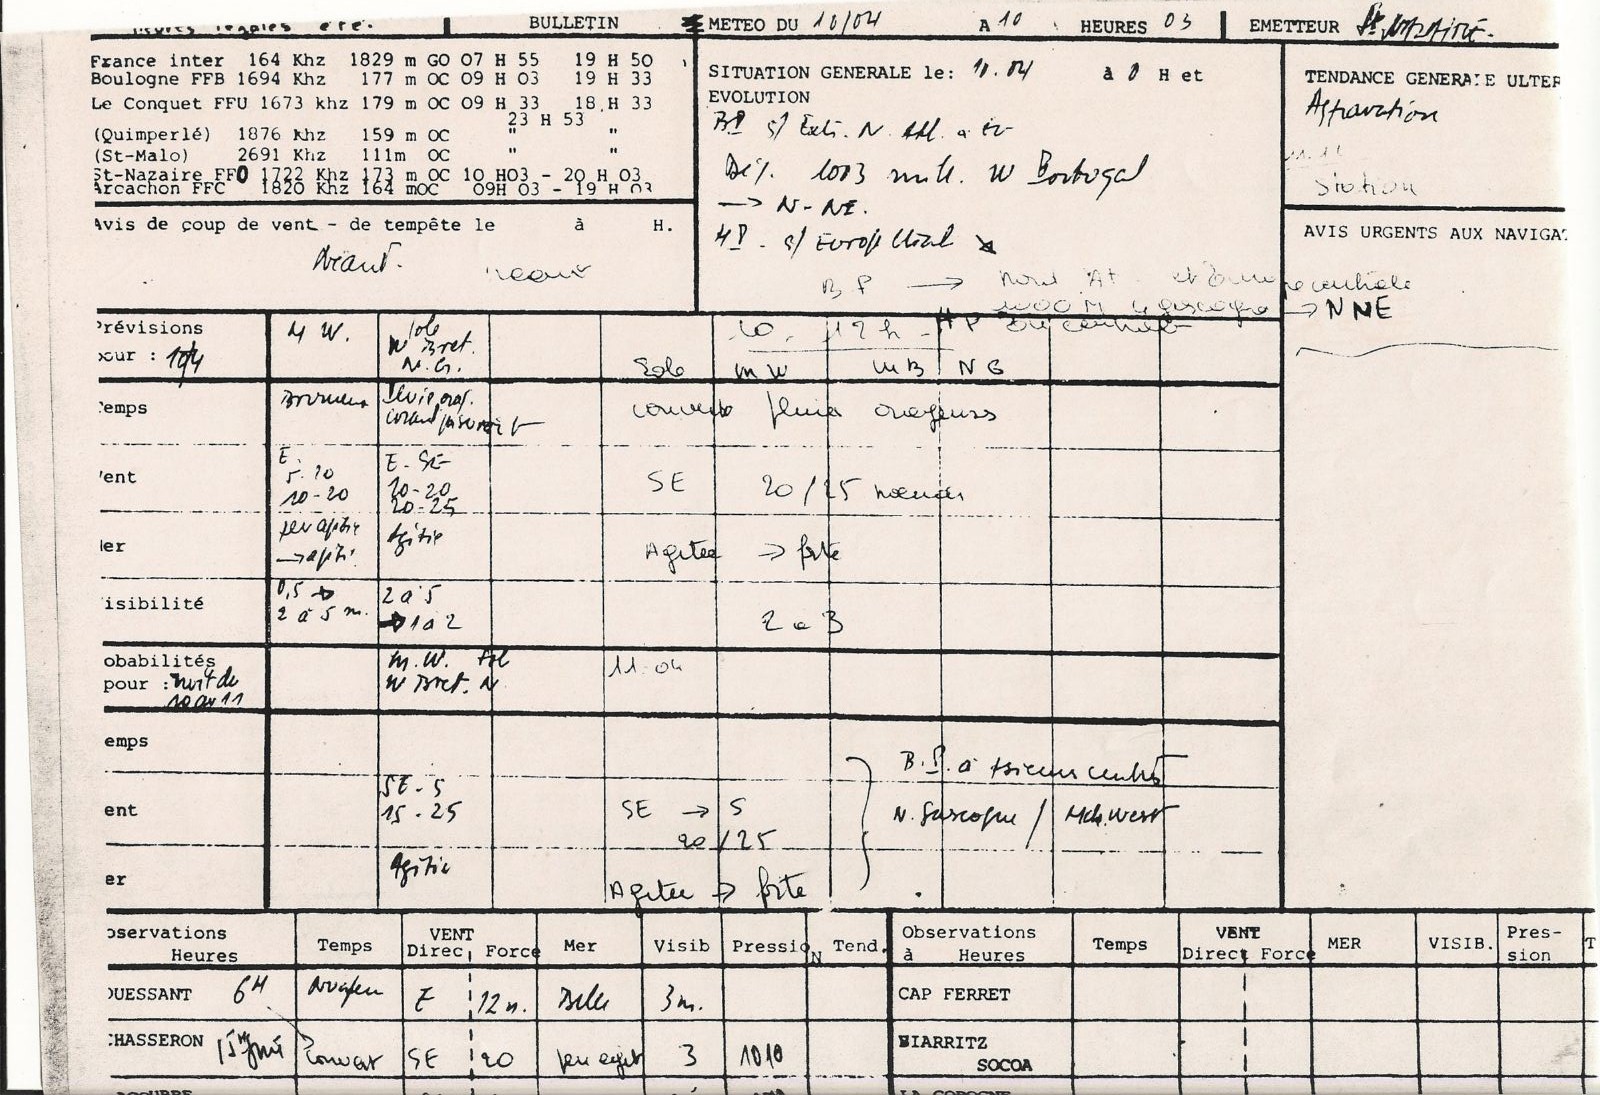 BULLETIN METEO DU 10/04 A 10 HEURES 03 EMETTEUR St. NAZAIRE.
France inter 164 Khz 1829 m GO 07 H 55 19 H 50
Boulogne FFB 1694 Khz 177 m OC 09 H 03 19 H 33
Le Conquet FFU 1673 khz 179 m OC 09 H 33 18 H 33
23 H 53
(Quimperlé) 1876 Khz 159 m OC " "
(St-Malo) 2691 Khz 111m OC " "
St-Nazaire FFO 1722 Khz 173 m OC 10 H03 - 20 H 03
Arcachon FFC 1820 Khz 164 mOC 09H 03 - 19 H 03
Avis de coup de vent - de tempête le à H.
Néant.
SITUATION GENERALE le: 10.04 à 0 H et
EVOLUTION
BP s/ Extr. N. Atl. à
Dép. 1003 mill. W Portugal
→ N-NE.
HP. s/ Europ
BP → Nord At
→ NNE
TENDANCE GENERALE ULTER
Aggravation
Station
AVIS URGENTS AUX NAVIGAT
Prévisions
pour : 10/4
M W.
Sole
W Bret.
N. G.
10. 12 h HP
Sole MW MB NG
Temps
Brumeux
Pluie orag.
couvert pluie orageuses
Vent
E.
5-10
10-20
E-SE
10-20
20-25
SE 20/25 noeuds
Mer
peu agitée
→ agité.
Agitée
Agitée → forte
isibilité
0,5 →
2 à 5 m.
2 à 5
→ 1 à 2
2 à 3
obabilités
pour : nuit de
10 au 11
M.W.
W Bret. N.
11-04
emps
ent
SE-S
15-25
SE → S
20/25
er
Agitée
Agitée → forte
B.P. à centres
N. Gascogne / Mch. West
Observations
Heures
Temps
VENT
Direc Force
Mer
Visib
Pression
Tend.
Observations
à Heures
Temps
VENT
Direct Force
MER
VISIB.
Pres-
sion
T
OUESSANT 6H E 12 n. Belle 3m.
CHASSERON couvert SE 20 peu agit 3 1010
CAP FERRET
BIARRITZ
SOCOA